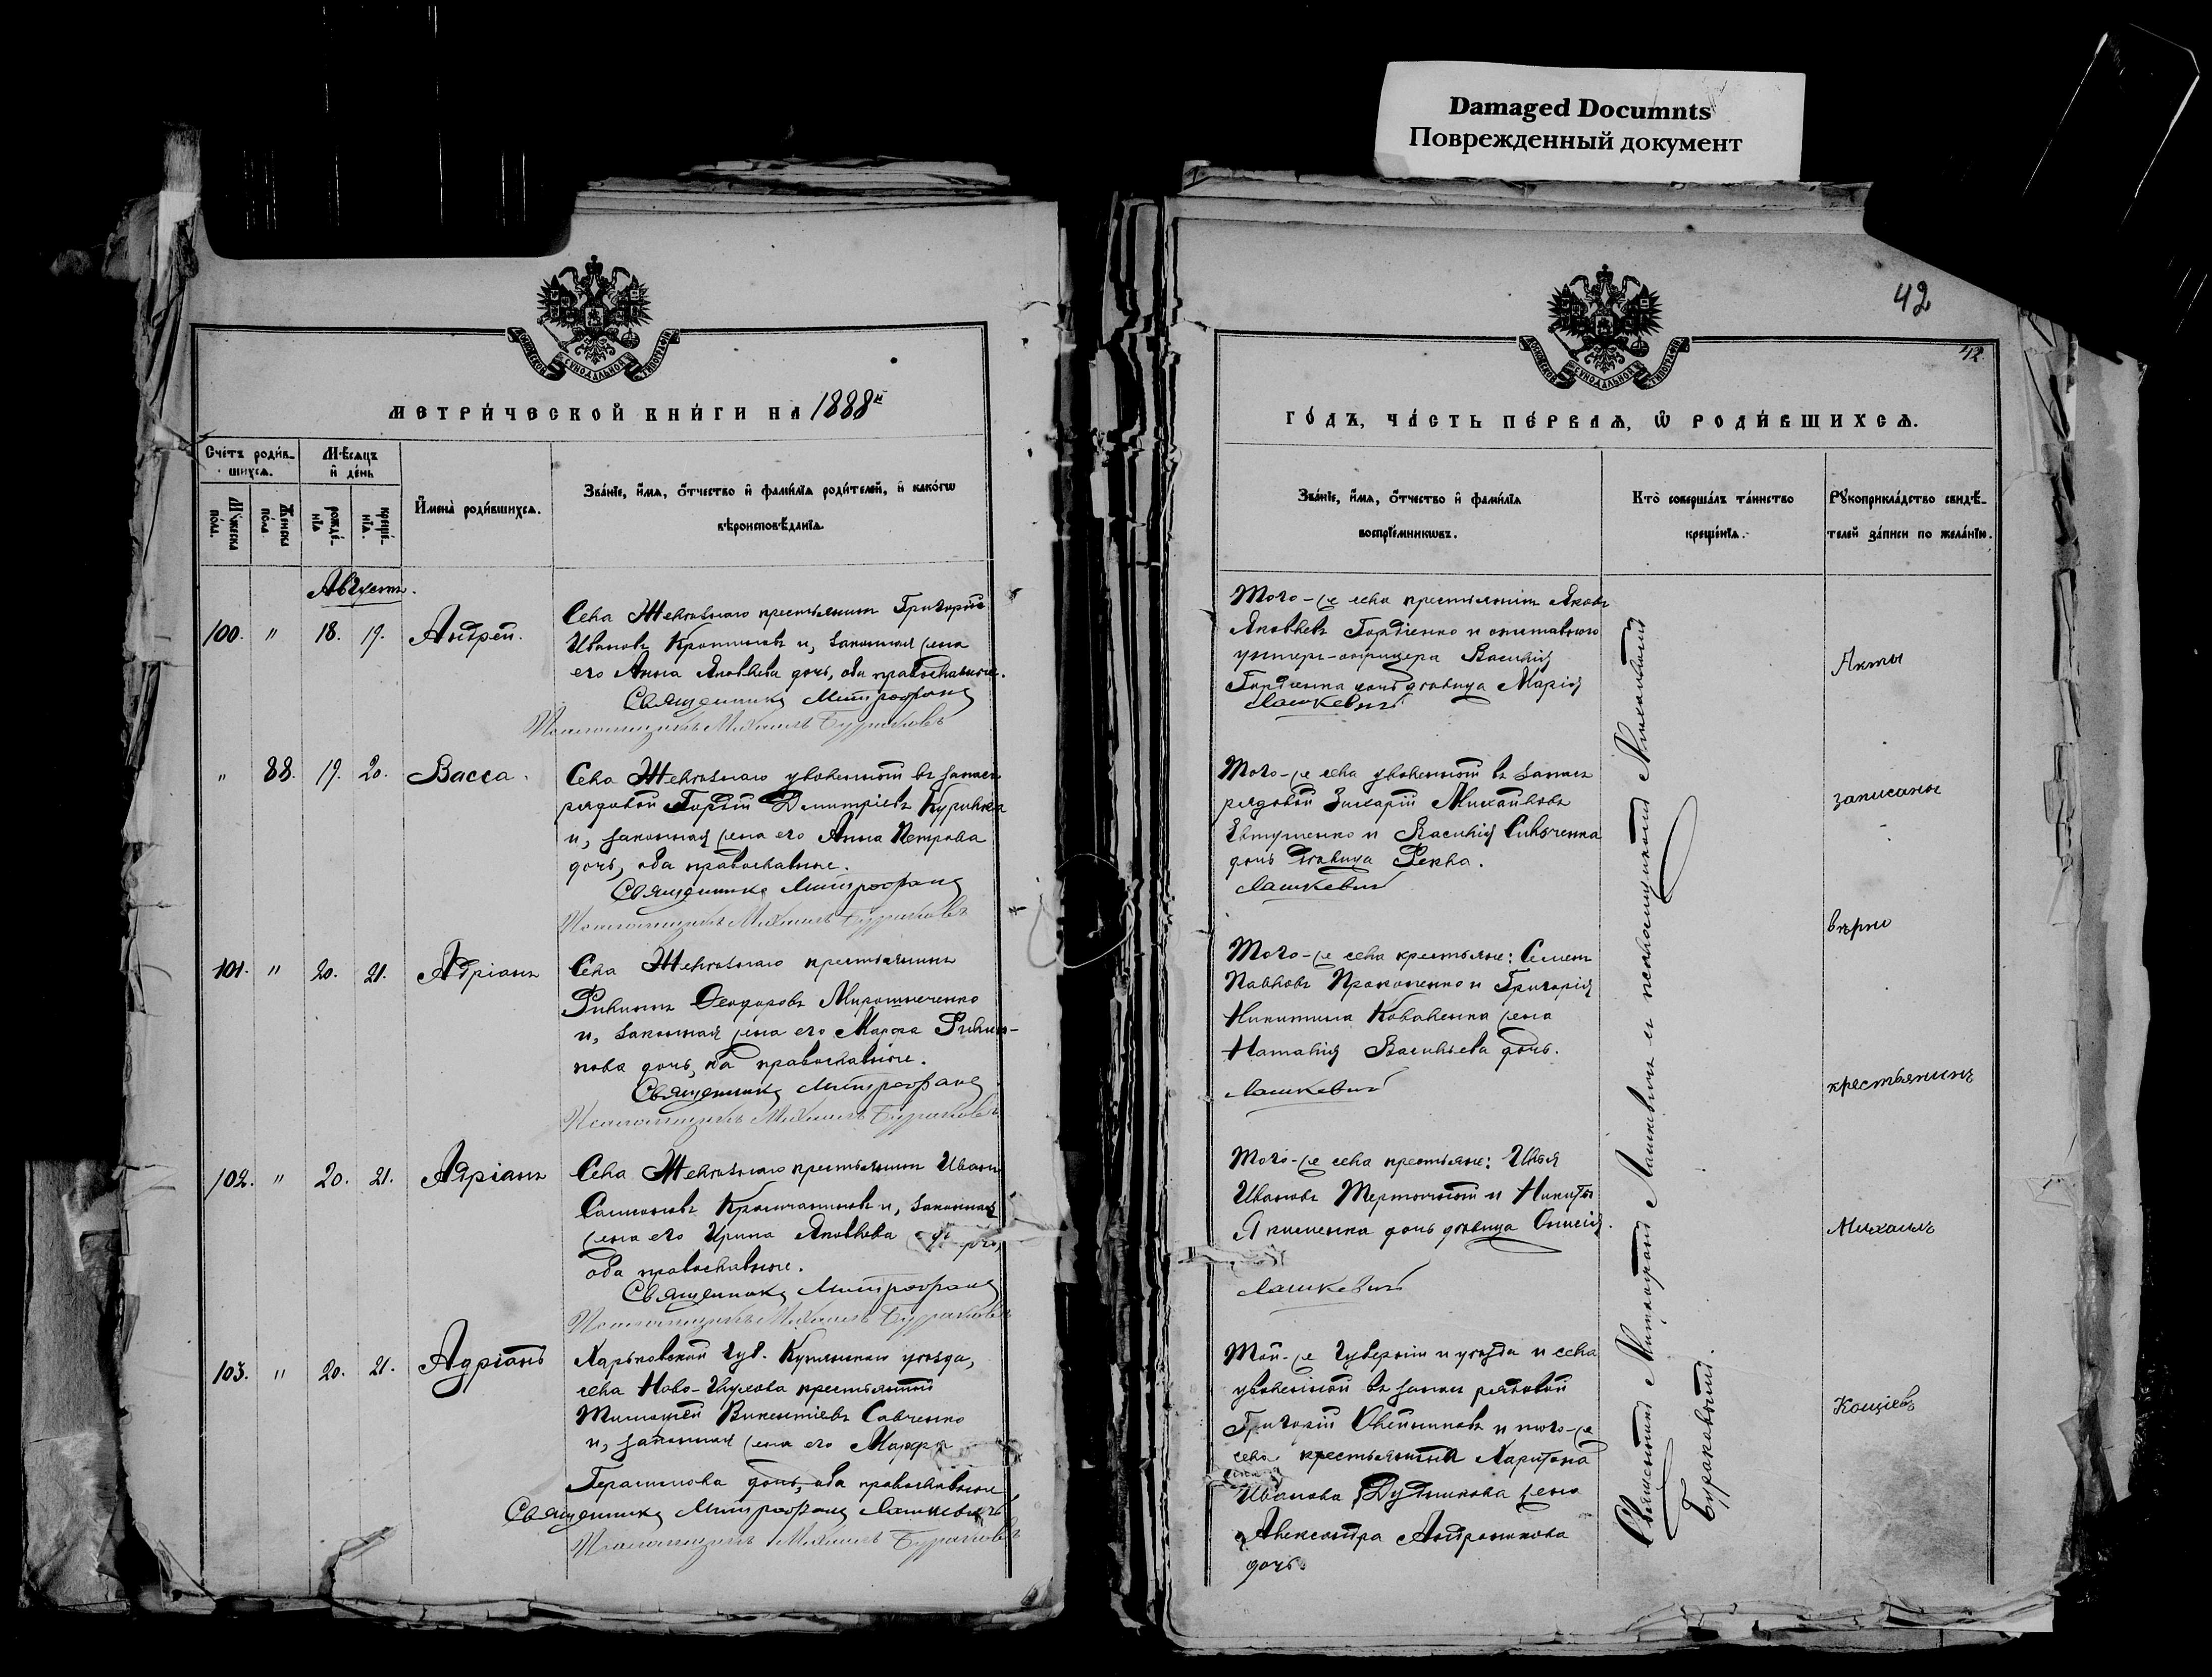 Damaged Documnts
Поврежденный документ
42
42.
МЕТРИЧЕСКОЙ КНИГИ НА 1888й
Счетъ родив-
шихся.
Мѣсяцъ
и день
Мужеска
пола.
Женска
пола.
рожде-
нія
креще-
нія.
Имена родившихся.
Званіе, имя, отчество и фамилія родителей, и какогѡ
вѣроисповѣданія.
Августъ.
100. " 18. 19. Андрей.
Села Жекгвѣльнаго крестьянинъ Григорій
Ивановъ и, законная жена
его Анна Яковлева дочь, оба православные.
Священникъ Митрофанъ
Псаломщикъ Михаилъ Бураковъ
" 88. 19. 20. Васса.
Села уволенный въ запасъ
рядовой Гордій Димитріевъ Куринка
и, законная жена его Анна Петрова
дочь, оба православные.
Священникъ Митрофанъ
Псаломщикъ Михаилъ Бураковъ
101. " 20. 21. Адріанъ
Села крестьянинъ
Филиппъ Ѳеодоровъ Мирошниченко
и, законная жена его Марфа Филип-
пова дочь, оба православные.
Священникъ Митрофанъ
Псаломщикъ Михаилъ Бураковъ
102. " 20. 21. Адріанъ
Села крестьянинъ Иванъ
и, законная
жена его Ирина Яковлева дочь,
оба православные.
Священникъ Митрофанъ
Псаломщикъ Михаилъ Бураковъ
103. " 20. 21. Адріанъ
Харьковской губ. Купянскаго уѣзда,
села крестьянинъ
Тимоѳей Викентіевъ Савченко
и, законная жена его Марфа
Герасимова дочь, оба православные
Священникъ Митрофанъ Лашкевичъ
Псаломщикъ Михаилъ Бураковъ
ГОДЪ, ЧАСТЬ ПЕРВАЯ, Ѡ РОДИВШИХСЯ.
Званіе, имя, отчество и фамилія
воспріемникѡвъ.
Кто совершалъ таинство
крещенія.
Рукоприкладство свидѣ-
телей записи по желанію.
Того-же села крестьянинъ Яковъ
Яковлевъ Гордіенко и отставного
унтеръ-офицера Василія
Гордіенка дочь дѣвица Марія
Лашкевичъ
Того-же села уволенный въ запасъ
рядовой Захарій Михайловъ
Евтушенко и Василія
дочь дѣвица Ѳекла.
Лашкевичъ
Того-же села крестьяне: Семенъ
Павловъ Прокопенко и Григорія
Никитина Коваленка жена
Наталія Васильева дочь.
Лашкевичъ
Того-же села крестьяне: Илья
Ивановъ и Никиты
Якименка дочь дѣвица
Лашкевичъ
Той-же губерніи и уѣзда и села
уволенный въ запасъ рядовой
Григорій Олейниковъ и того-же
села крестьянина Харитона
Иванова Дудникова жена
Александра Андроникова
дочь.
Священникъ Митрофанъ Лашкевичъ съ псаломщикомъ Михаиломъ
Бураковымъ.
Акты
записаны
вѣрно
крестьянинъ
Михаилъ